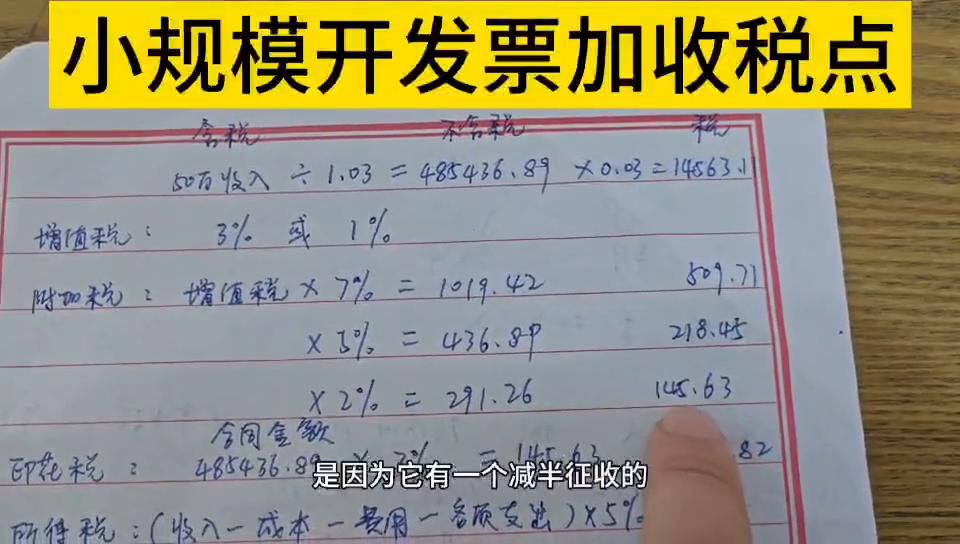 小规模开发票加收税点
含税 不含税 税
50万收入 ÷ 1.03 = 485436.89 ×0.03 = 14563.1
增值税： 3% 或 1%
附加税： 增值税 × 7% = 1019.42 509.71
× 3% = 436.89 218.45
× 2% = 291.26 145.63
合同金额
印花税： 485436.89 = 145.63 .82
是因为它有一个减半征收的
所得税：(收入－成本－费用－各项支出)×5%